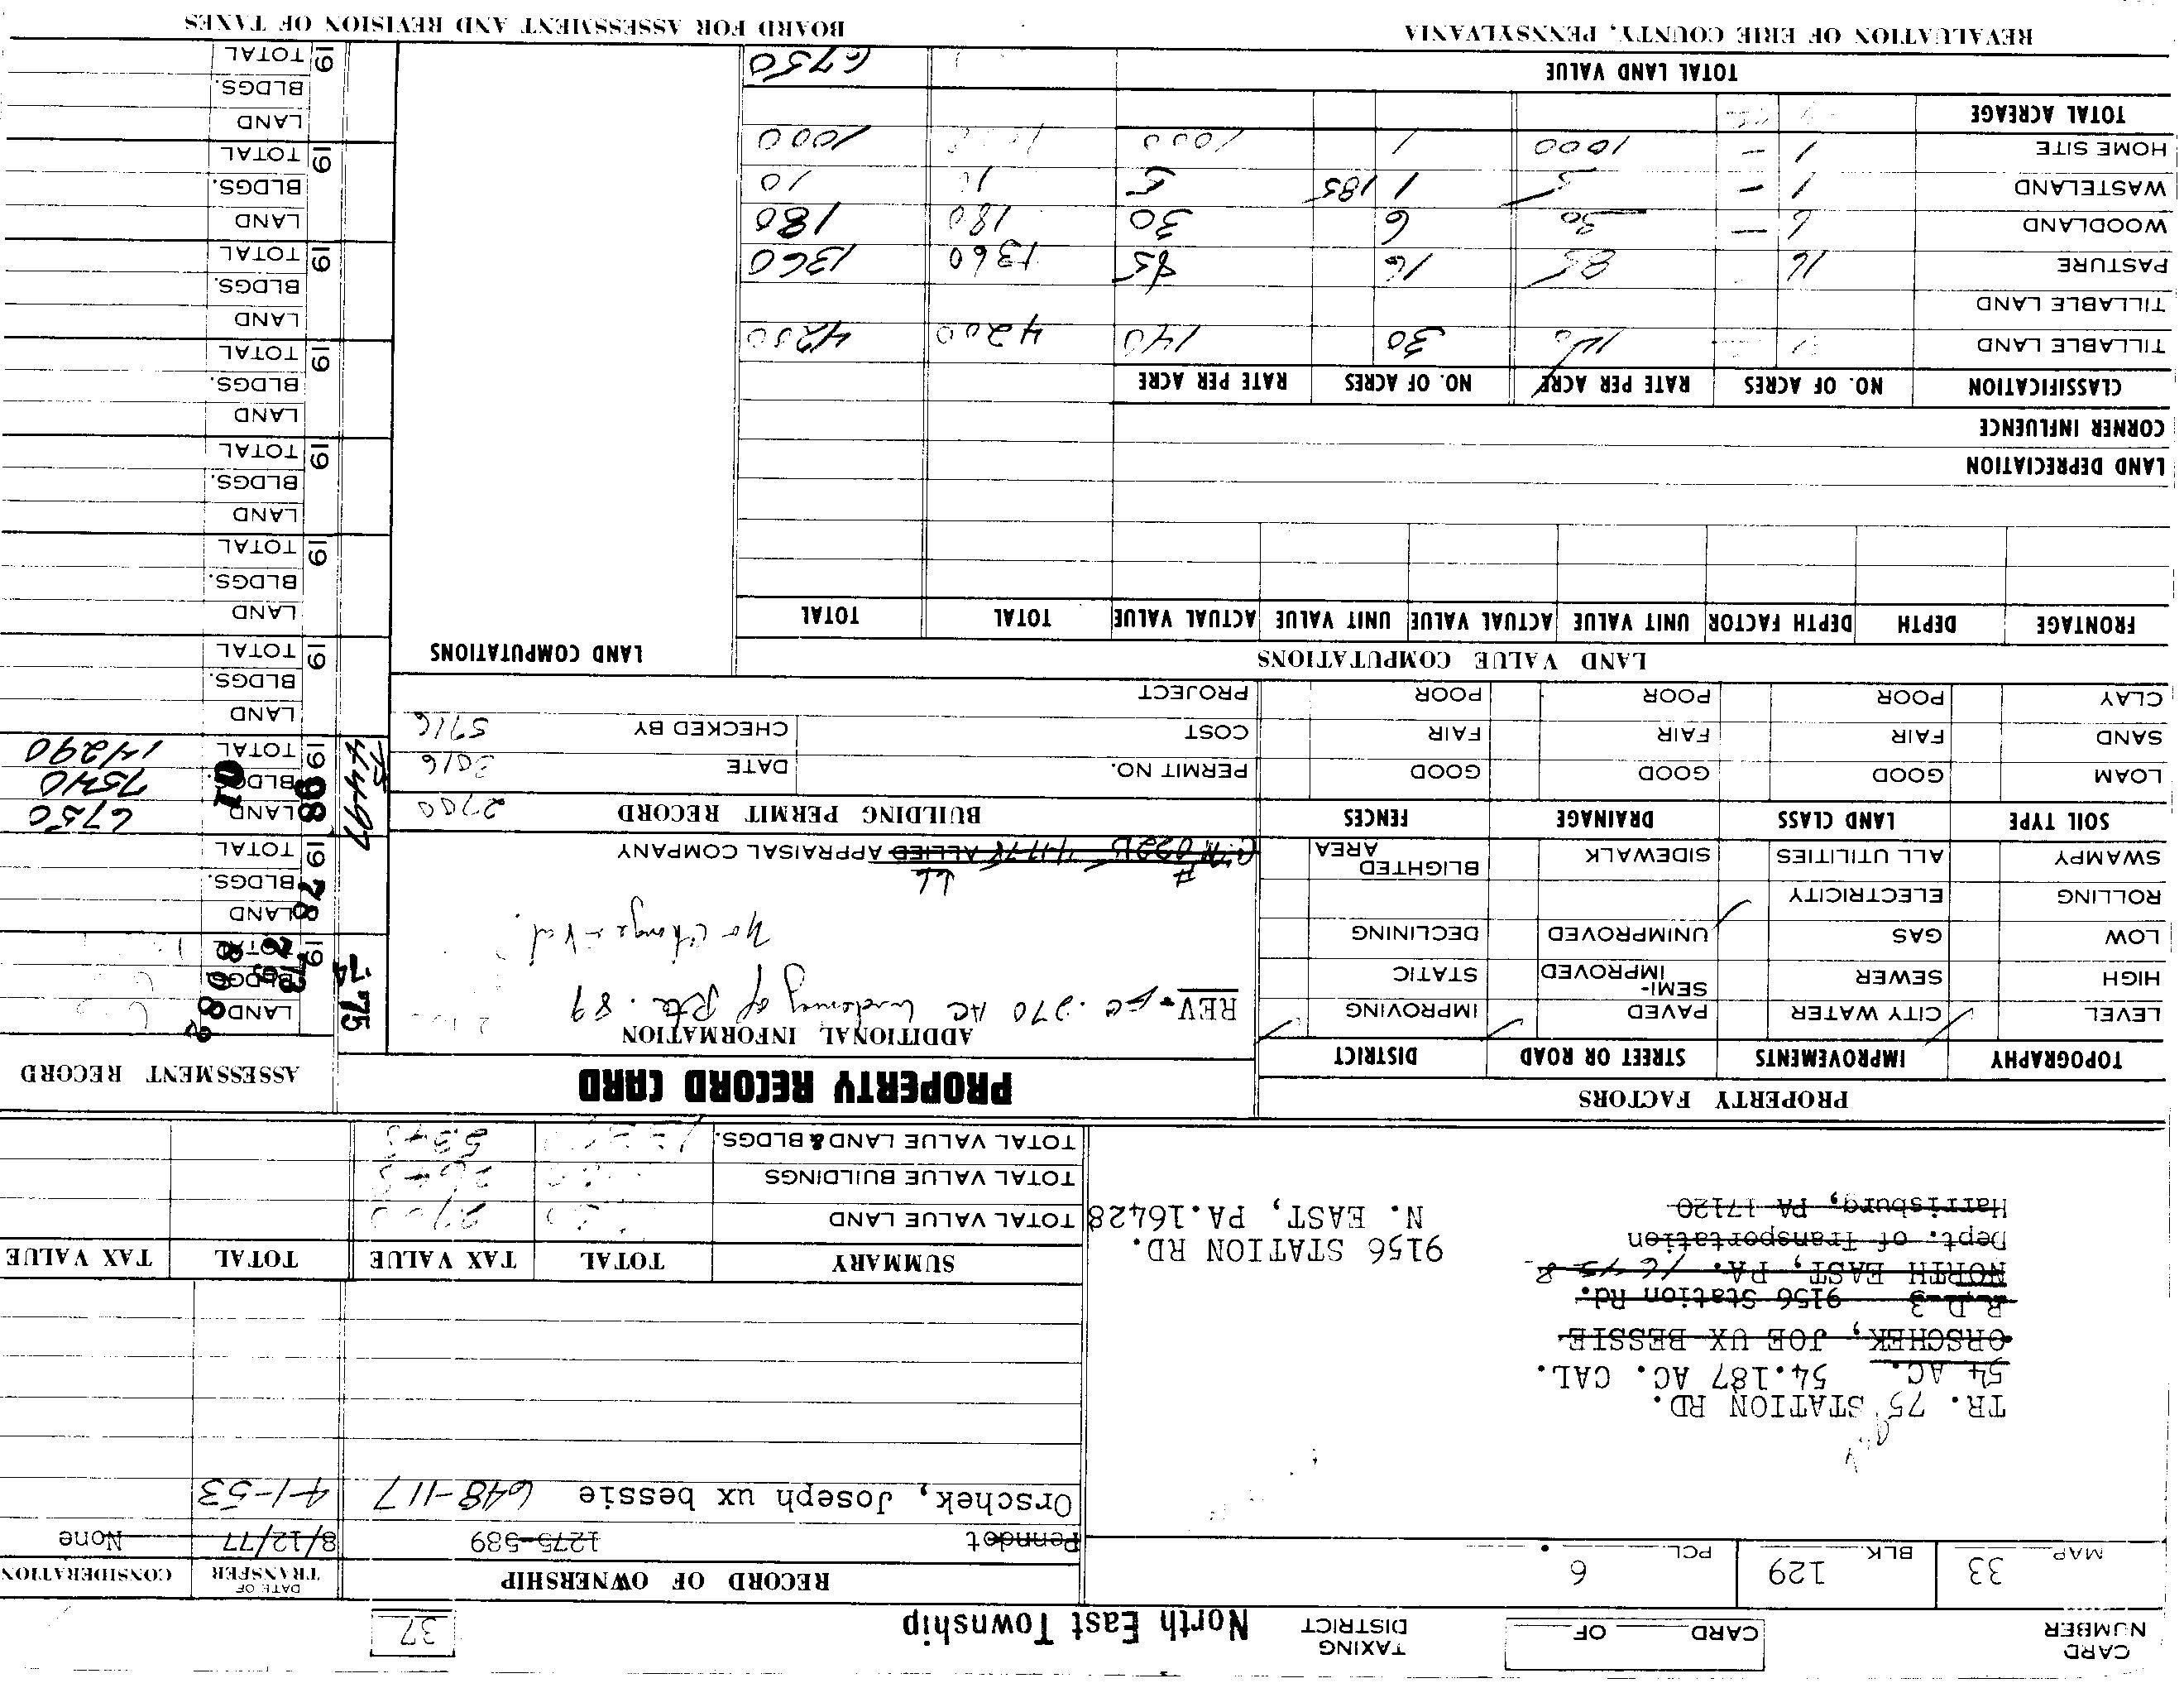 CARD NUMBER
CARD OF
TAXING DISTRICT North East Township
37
MAP 33 BLK 129 PCL 6
RECORD OF OWNERSHIP DATE OF TRANSFER CONSIDERATION
Penndot 1275-589 8/12/77 None
Orschek, Joseph ux bessie 648-117 4-1-53
TR. 75 STATION RD.
54 AC. 54.187 AC. CAL.
ORSCHEK, JOE UX BESSIE
R D 3 9156 Station Rd.
NORTH EAST, PA.
Dept. of Transportation
Harrisburg, PA 17120
9156 STATION RD.
N. EAST, PA.16428
SUMMARY TOTAL TAX VALUE TOTAL TAX VALUE
TOTAL VALUE LAND 2700
TOTAL VALUE BUILDINGS
TOTAL VALUE LAND & BLDGS.
PROPERTY FACTORS
TOPOGRAPHY IMPROVEMENTS STREET OR ROAD DISTRICT
LEVEL CITY WATER PAVED IMPROVING
HIGH SEWER SEMI-IMPROVED STATIC
LOW GAS UNIMPROVED DECLINING
ROLLING ELECTRICITY
SWAMPY ALL UTILITIES SIDEWALK BLIGHTED AREA
SOIL TYPE LAND CLASS DRAINAGE FENCES
LOAM GOOD GOOD GOOD
SAND FAIR FAIR FAIR
CLAY POOR POOR POOR
PROPERTY RECORD CARD
ADDITIONAL INFORMATION
REV .270 AC widening of Rte. 89
No change in Val.
# LL
ALLIED APPRAISAL COMPANY
BUILDING PERMIT RECORD 2700
PERMIT NO. DATE 3016
COST CHECKED BY 5716
PROJECT
ASSESSMENT RECORD
'75
'74
19 73
LAND
BLDGS.
TOTAL
19 78
LAND
BLDGS.
TOTAL
19 88
01
LAND 6750
BLDGS. 7540
TOTAL 14290
19
LAND
BLDGS.
TOTAL
19
LAND
BLDGS.
TOTAL
19
LAND
BLDGS.
TOTAL
19
LAND
BLDGS.
TOTAL
19
LAND
BLDGS.
TOTAL
19
LAND
BLDGS.
TOTAL
19
LAND
BLDGS.
TOTAL
LAND VALUE COMPUTATIONS
LAND COMPUTATIONS
FRONTAGE DEPTH DEPTH FACTOR UNIT VALUE ACTUAL VALUE UNIT VALUE ACTUAL VALUE TOTAL TOTAL
LAND DEPRECIATION
CORNER INFLUENCE
CLASSIFICATION NO. OF ACRES RATE PER ACRE NO. OF ACRES RATE PER ACRE
TILLABLE LAND 30 140 4200 4200
TILLABLE LAND
PASTURE 16 85 16 85 1360 1360
WOODLAND 6 — 30 6 30 180 180
WASTELAND 1 — 5 1 185 5 10 10
HOME SITE 1 — 1000 1 1000 1000
TOTAL ACREAGE
TOTAL LAND VALUE 6750
REVALUATION OF ERIE COUNTY, PENNSYLVANIA
BOARD FOR ASSESSMENT AND REVISION OF TAXES